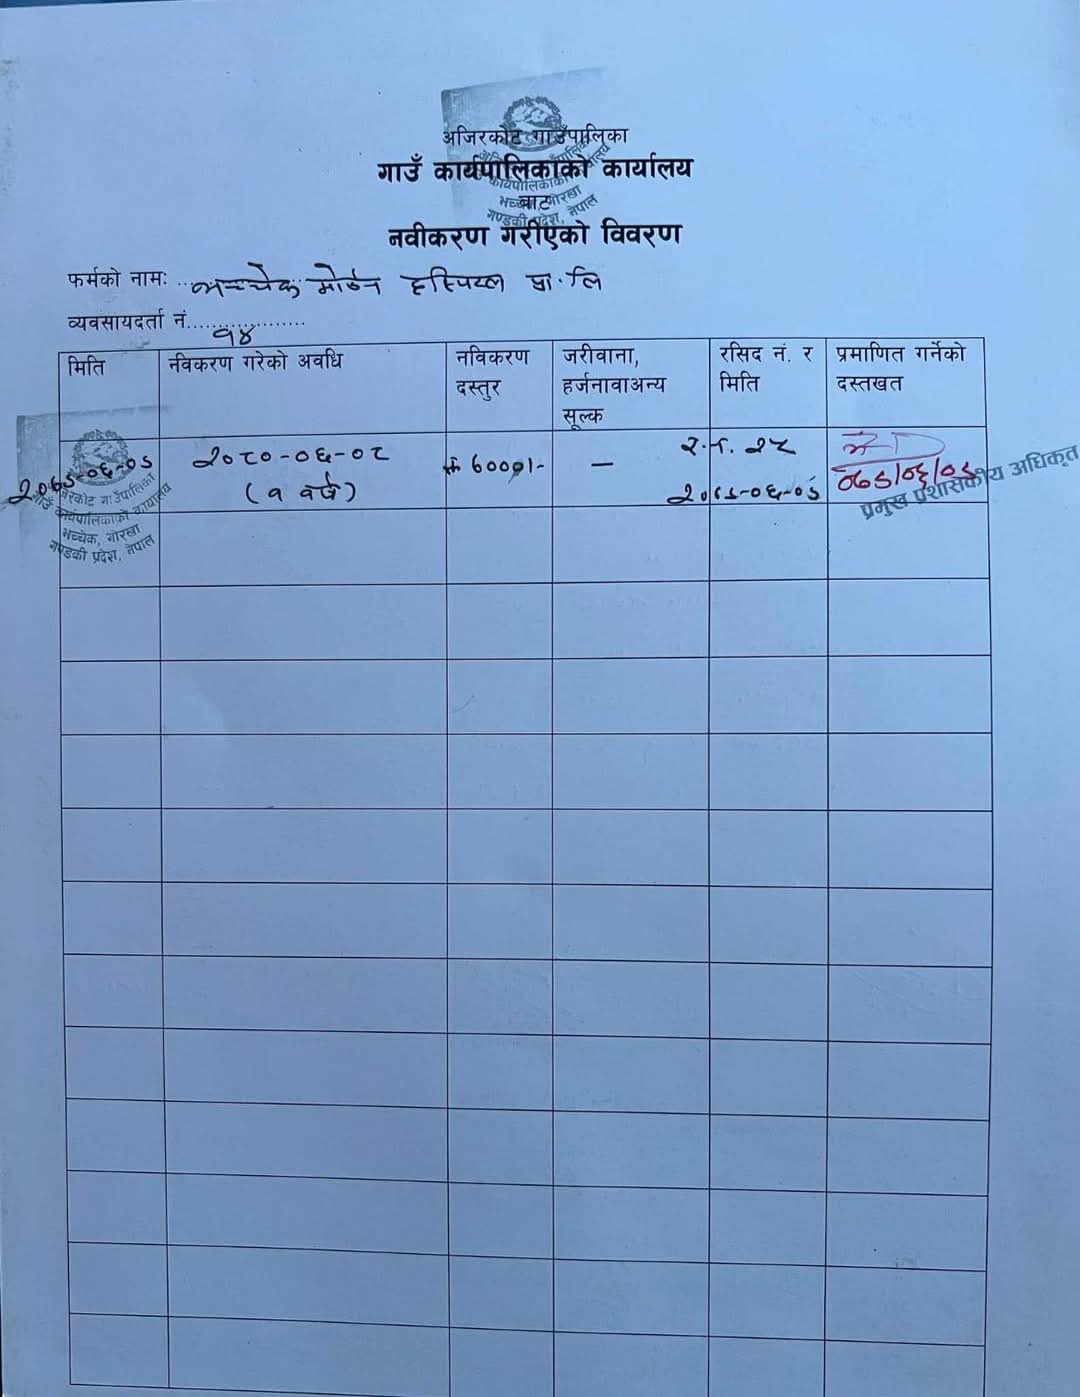 अजिरकोट गाउँपालिका
गाउँ कार्यपालिकाको कार्यालय
बाट
नवीकरण गरीएको विवरण
फर्मको नामः ..भच्चेक मोर्डन हस्पिटल प्रा.लि
व्यवसायदर्ता नं....................
१४
मिति
नविकरण गरेको अवधि
नविकरण दस्तुर
जरीवाना, हर्जनावाअन्य सूल्क
रसिद नं. र मिति
प्रमाणित गर्नेको दस्तखत
२०७९-०६-०९
२०८०-०६-०८
(१ वर्ष)
र.नं. २८
२०७९-०६-०९
०७९/०६/०९
प्रमुख प्रशासकीय अधिकृत
अजिरकोट गाउँपालिका
गाउँ कार्यपालिकाको कार्यालय
भच्चेक, गोरखा
गण्डकी प्रदेश, नेपाल